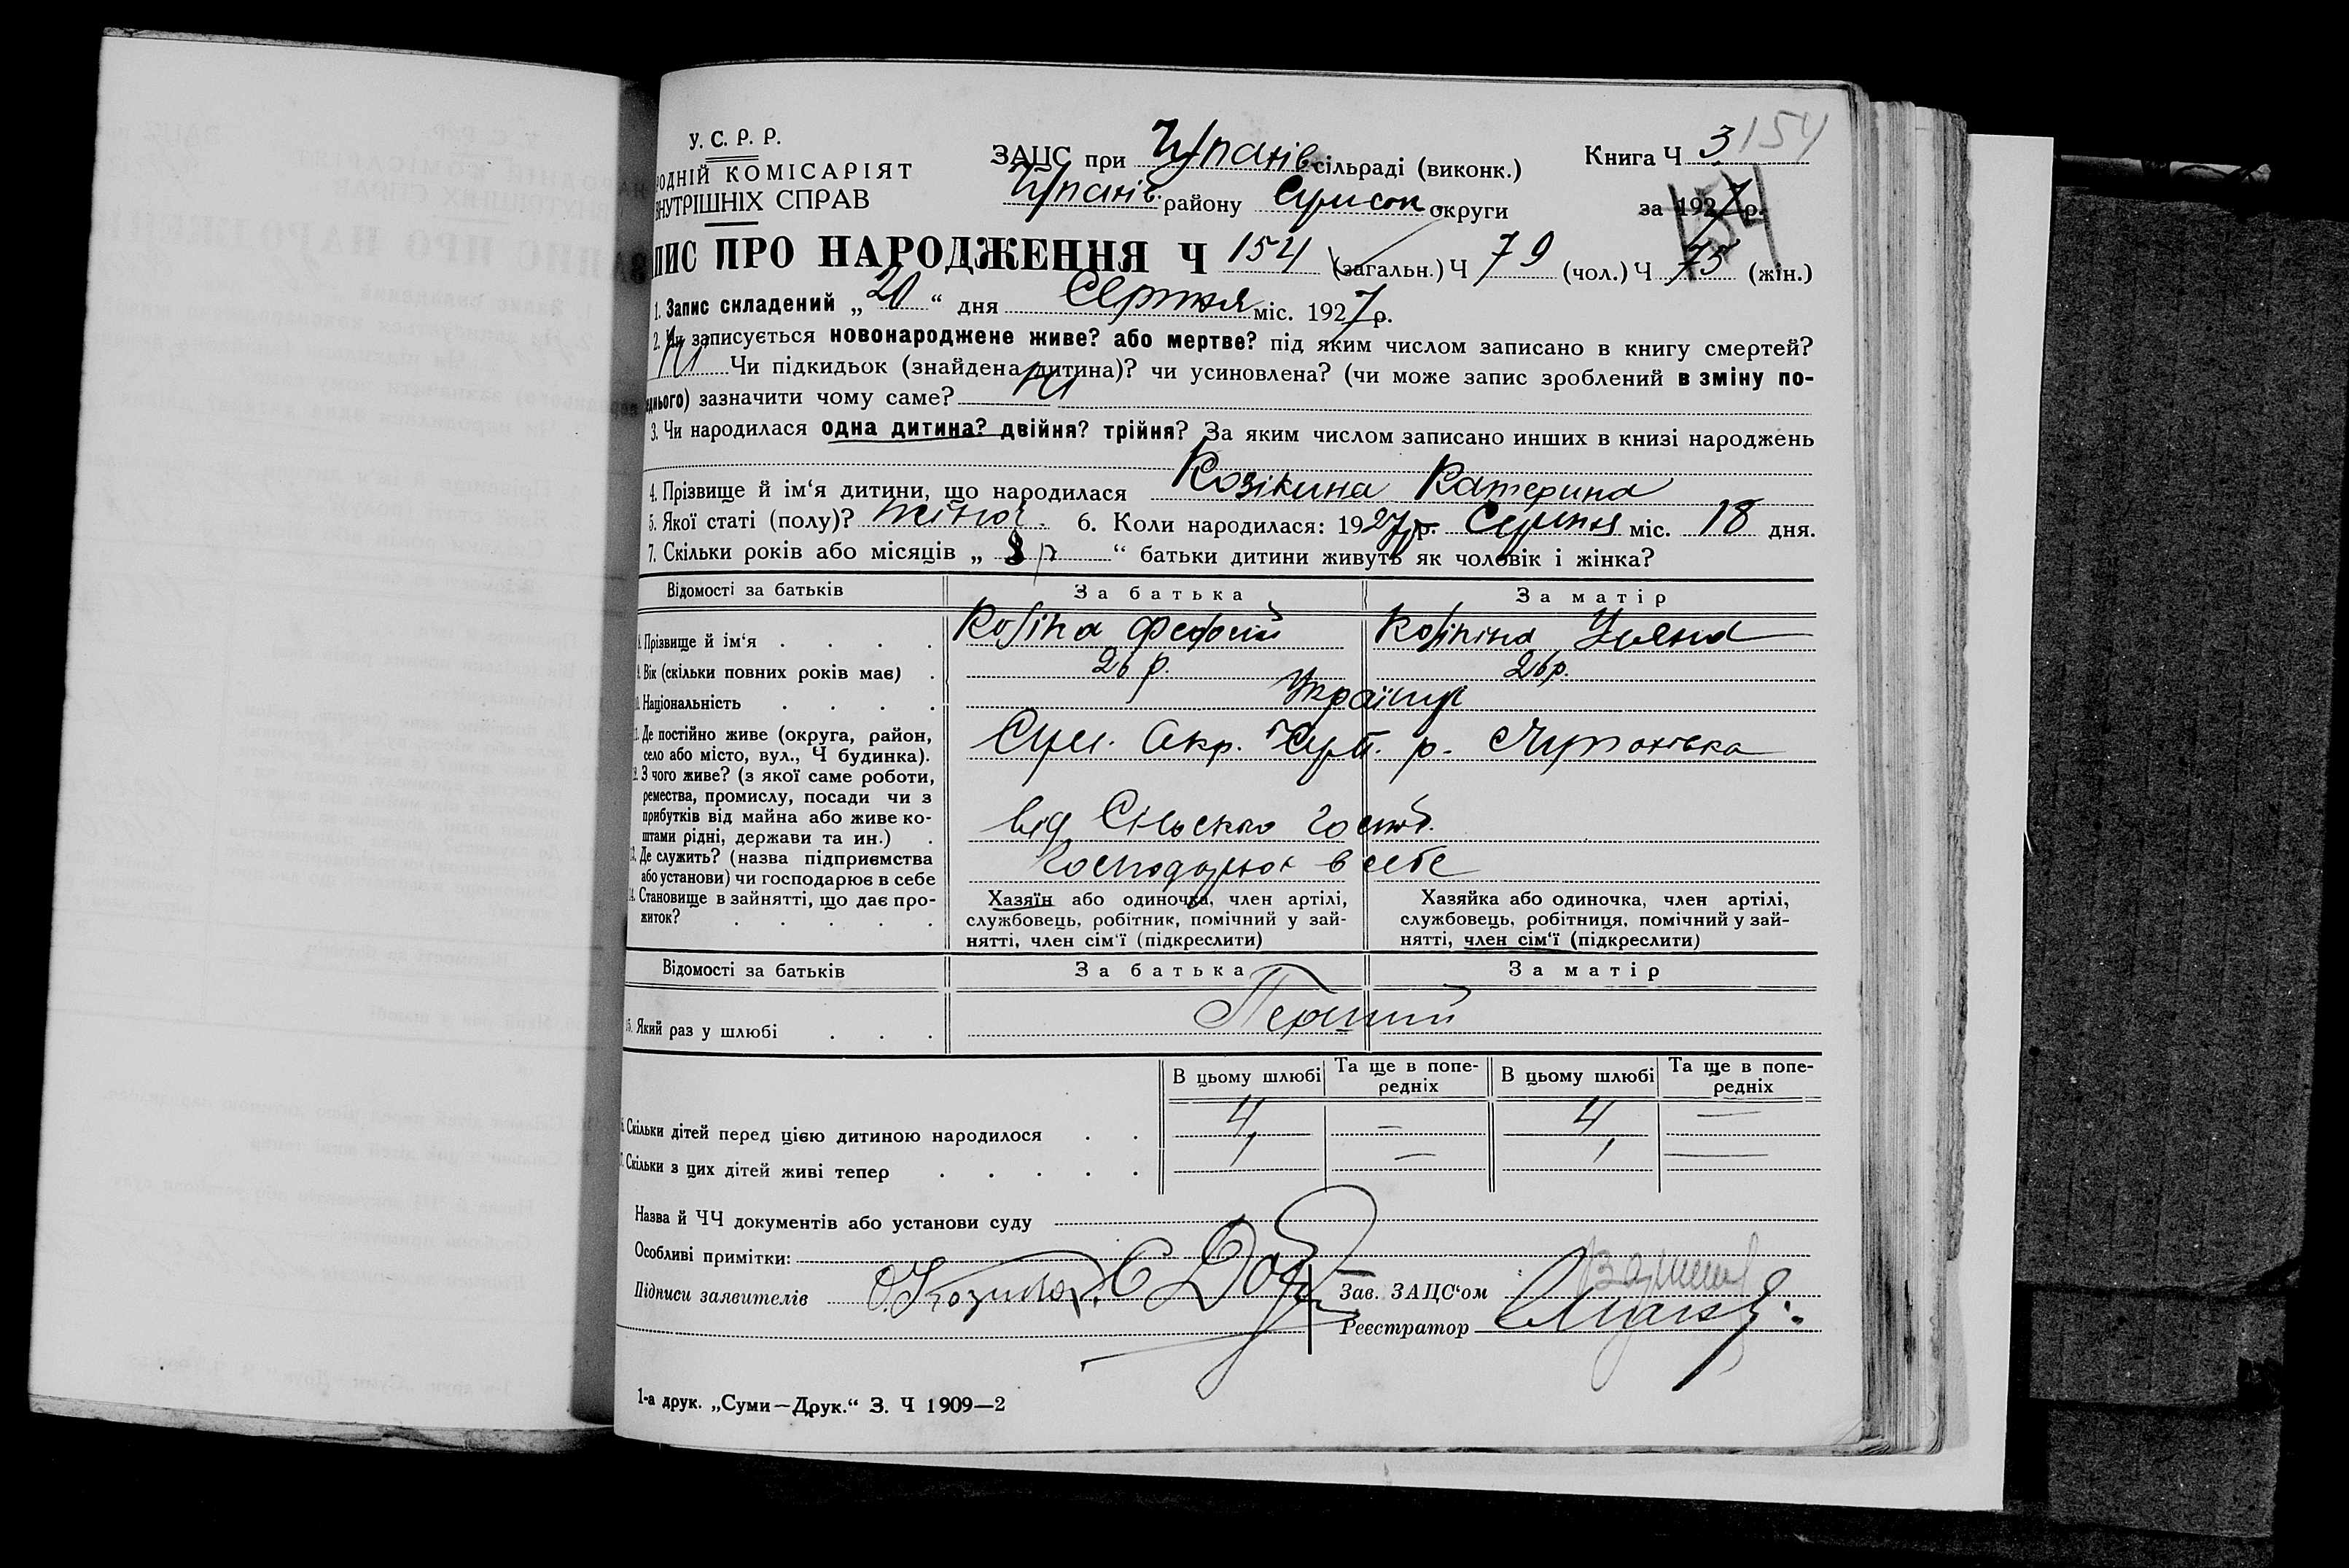 154
У. С. Р. Р.
ЗАЦС при Чупахів сільраді (виконк.) Книга Ч 3
ОДНІЙ КОМІСАРІЯТ
НУТРІШНІХ СПРАВ
Чупахів. району Сумськ округи за 1927 р.
154
ПИС ПРО НАРОДЖЕННЯ Ч 154 (загальн.) Ч 79 (чол.) Ч 75 (жін.)
1. Запис складений „ 20 “ дня Серпня міс. 1927 р.
2. Чи записується новонароджене живе? або мертве? під яким числом записано в книгу смертей?
Ні Чи підкидьок (знайдена дитина)? чи усиновлена? (чи може запис зроблений в зміну по-
еднього) зазначити чому саме? Ні
3. Чи народилася одна дитина? двійня? трійня? За яким числом записано инших в книзі народжень
4. Прізвище й ім‘я дитини, що народилася Козікина Катерина
5. Якої статі (полу)? жіноч. 6. Коли народилася: 1927 р. Серпня міс. 18 дня.
7. Скільки років або місяців „ 8 р “ батьки дитини живуть як чоловік і жінка?
Відомості за батьків За батька За матір
8. Прізвище й ім‘я Козіка Федосій Козікіна Уляна
9. Вік (скільки повних років має) 26 р. 26 р.
Національність Українці
Де постійно живе (округа, район,
село або місто, вул., Ч будинка). Сум. Окр. р.
З чого живе? (з якої саме роботи,
ремества, промислу, посади чи з
прибутків від майна або живе ко-
штами рідні, держави та ин.) від Сільсько госпо.
Де служить? (назва підприємства
або установи) чи господарює в себе Господарює в себе
Становище в зайнятті, що дає про-
житок?
Хазяїн або одиночка, член артілі,
службовець, робітник, помічний у зай-
нятті, член сім‘ї (підкреслити)
Хазяйка або одиночка, член артілі,
службовець, робітниця, помічний у зай-
нятті, член сім‘ї (підкреслити)
Відомості за батьків За батька За матір
15. Який раз у шлюбі Перший
В цьому шлюбі Та ще в попе-
редніх В цьому шлюбі Та ще в попе-
редніх
Скільки дітей перед цією дитиною народилося 4 — 4 —
Скільки з цих дітей живі тепер 1 — 1 —
Назва й ЧЧ документів або установи суду
Особливі примітки:
Підписи заявителів Зав. ЗАЦС‘ом
Реєстратор
1-а друк. „Суми—Друк.“ З. Ч 1909—2